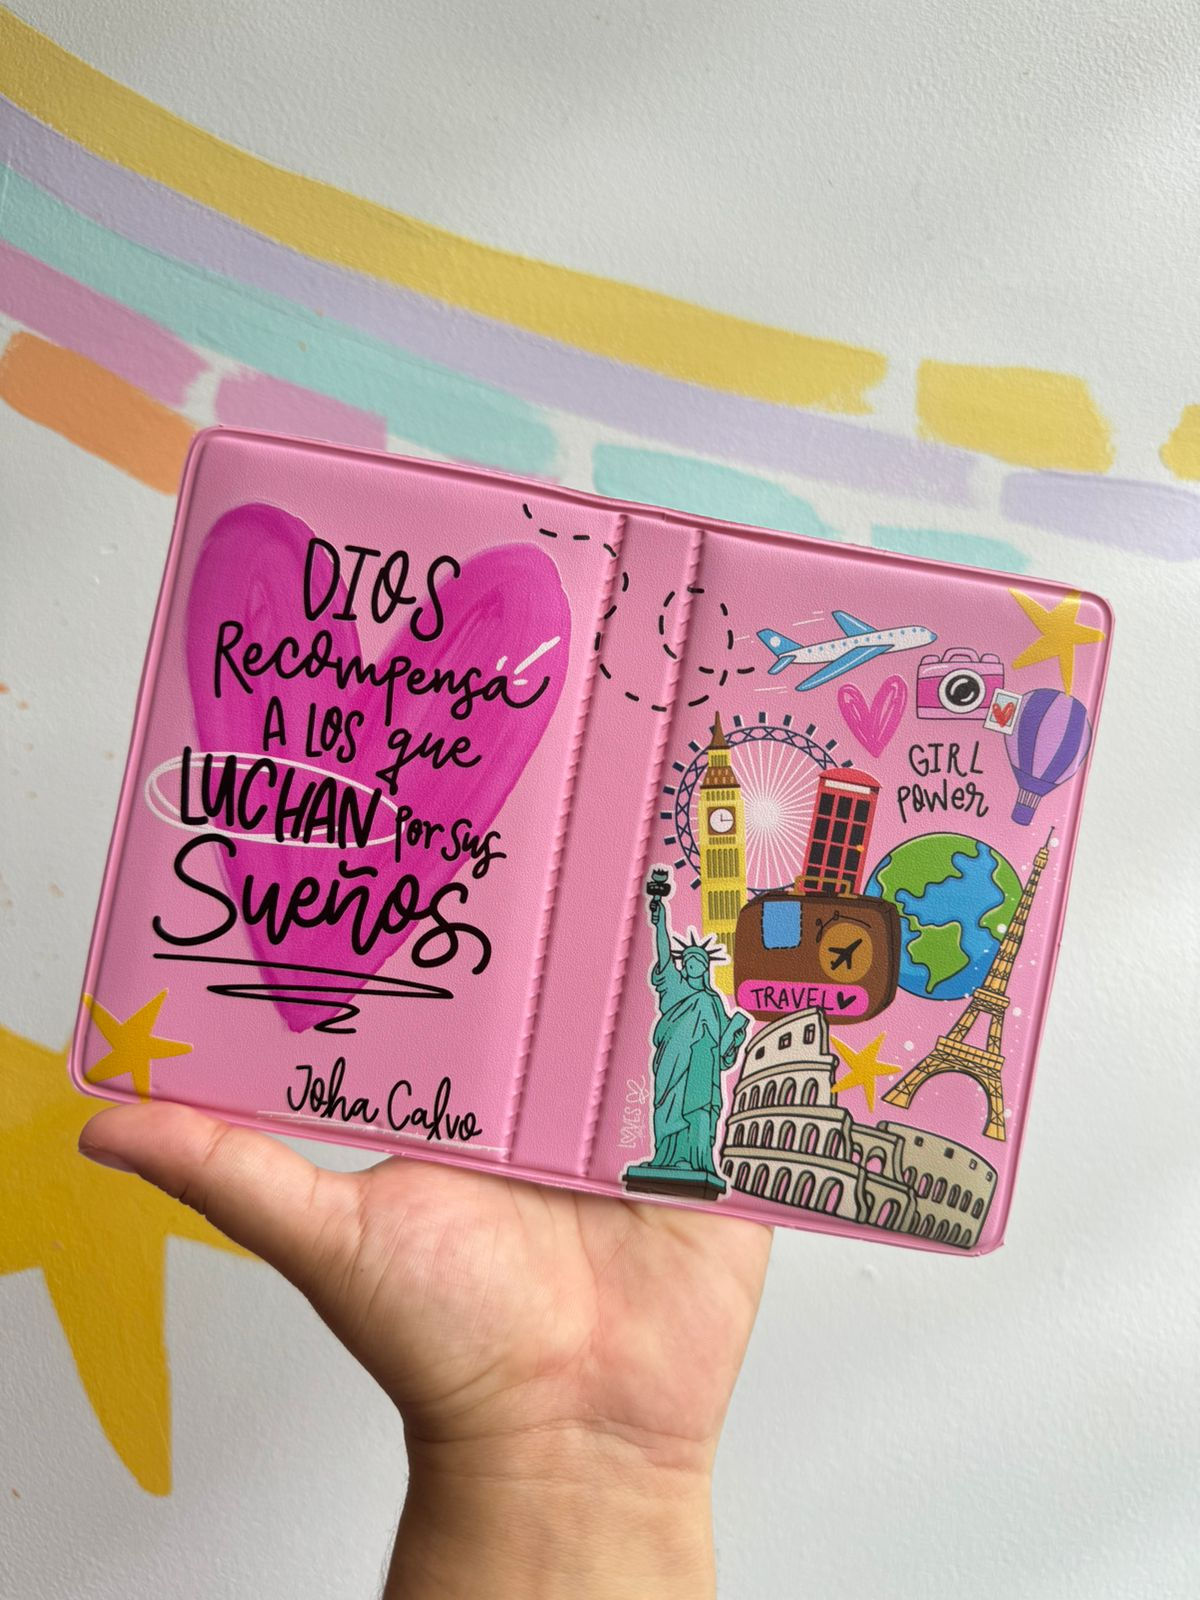 DIOS
Recompensa
A LOS que
LUCHAN por sus
Sueños
Joha Calvo
GIRL
POWER
TRAVEL